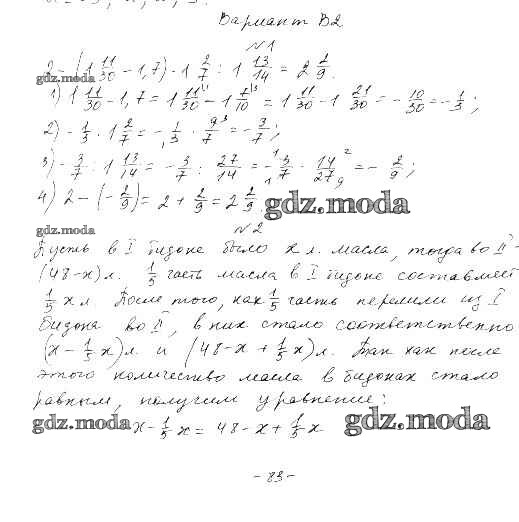 Вариант В2
№1
2 - (1 11/30 - 1,7) · 1 2/7 : 1 13/14 = 2 2/9.
gdz.moda
1) 1 11/30 - 1,7 = 1 11/30 - 1 7/10 = 1 11/30 - 1 21/30 = - 10/30 = - 1/3;
2) - 1/3 · 1 2/7 = - 1/3 · 9/7 = - 3/7;
3) - 3/7 : 1 13/14 = - 3/7 : 27/14 = - 3/7 · 14/27 = - 2/9;
4) 2 - (- 2/9) = 2 + 2/9 = 2 2/9.
gdz.moda
gdz.moda
№2
Пусть в I бидоне было x л. масла, тогда во II -
(48-x) л. 1/5 часть масла в I бидоне составляет
1/5 x л После того, как 1/5 часть перелили из I
бидона во II, в них стало соответственно
(x - 1/5 x) л. и (48-x + 1/5 x) л. Так как после
этого количество масла в бидонах стало
равным, получим уравнение:
gdz.moda
x - 1/5 x = 48 - x + 1/5 x
gdz.moda
- 83 -